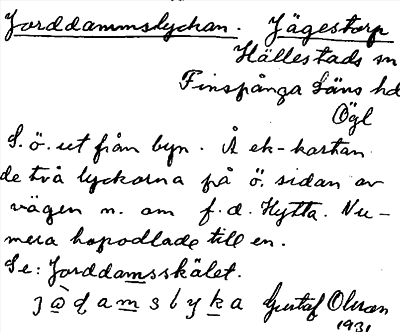 Jorddammslyckan. Jägestorp
Hällestads sn
Finspånga läns hd
Ögl
S. ö. ut från byn. Å ek-kartan
de två lyckorna på ö. sidan av
vägen n. om f. d. Hytta. Nu-
mera hopodlade till en.
Se: Jorddamsskälet.
Gustaf Olsson
1931